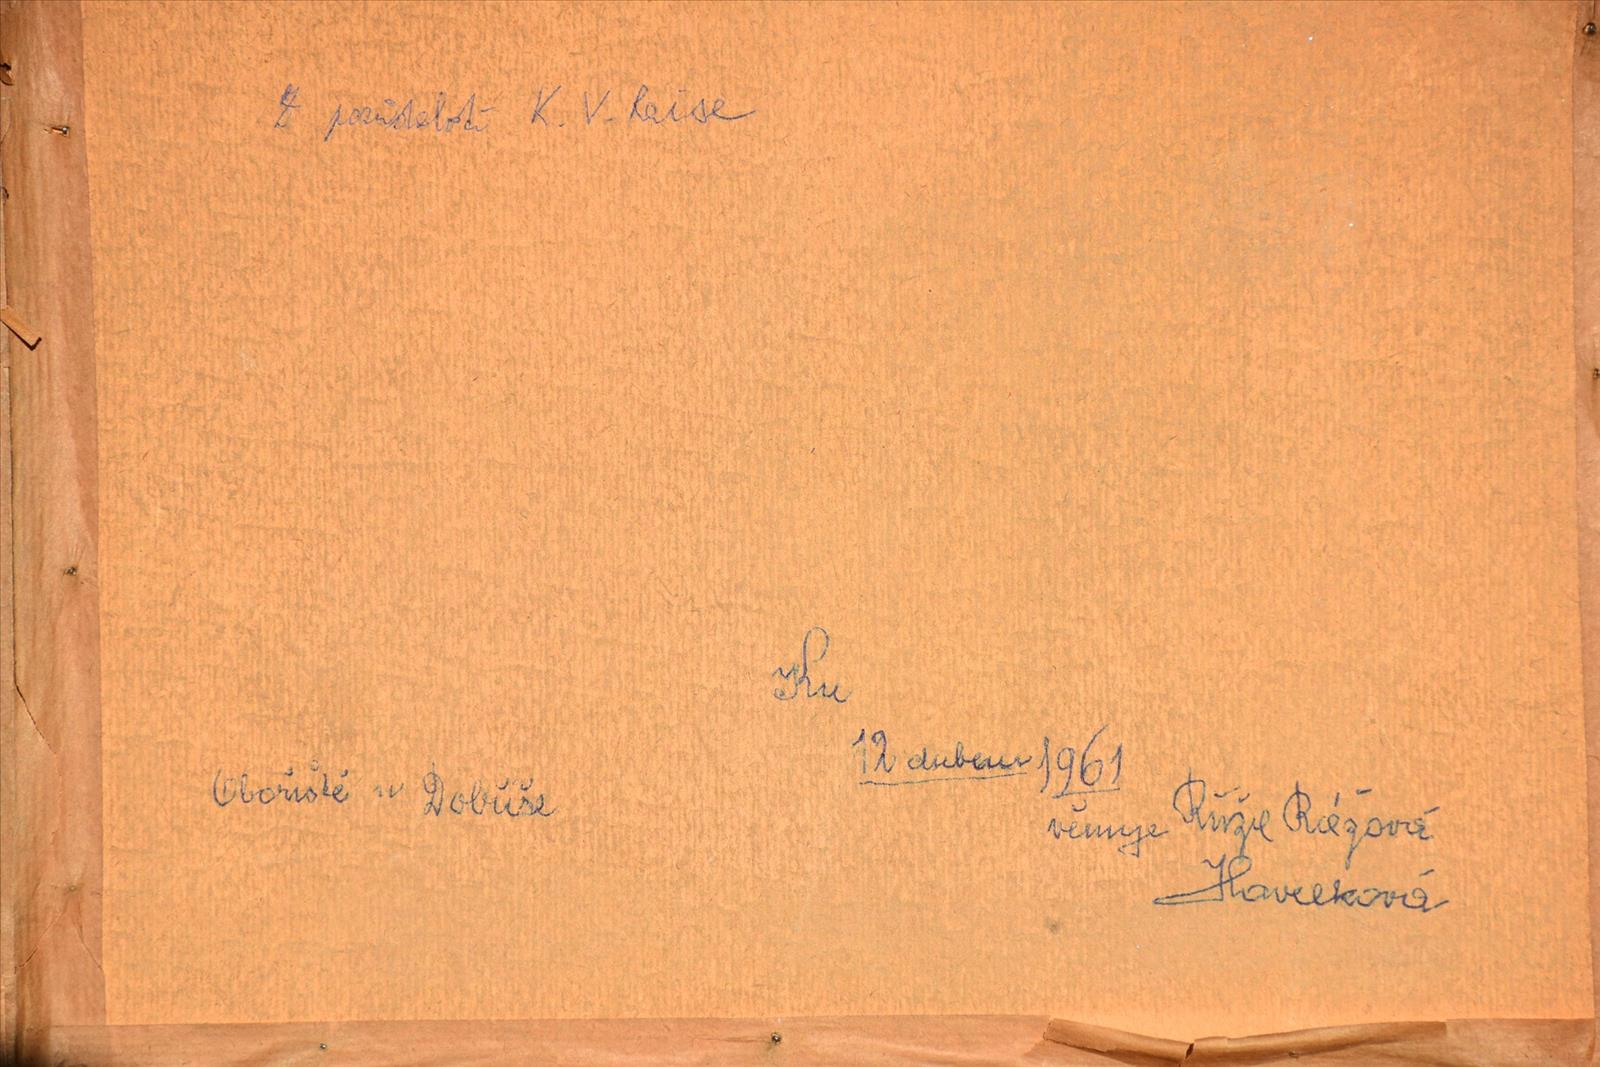 Z pozůstalosti K. V. Raise
Ku
12 dubnu 1961
Obořiště u Dobříše
věnuje Růže Rážová
Havelková